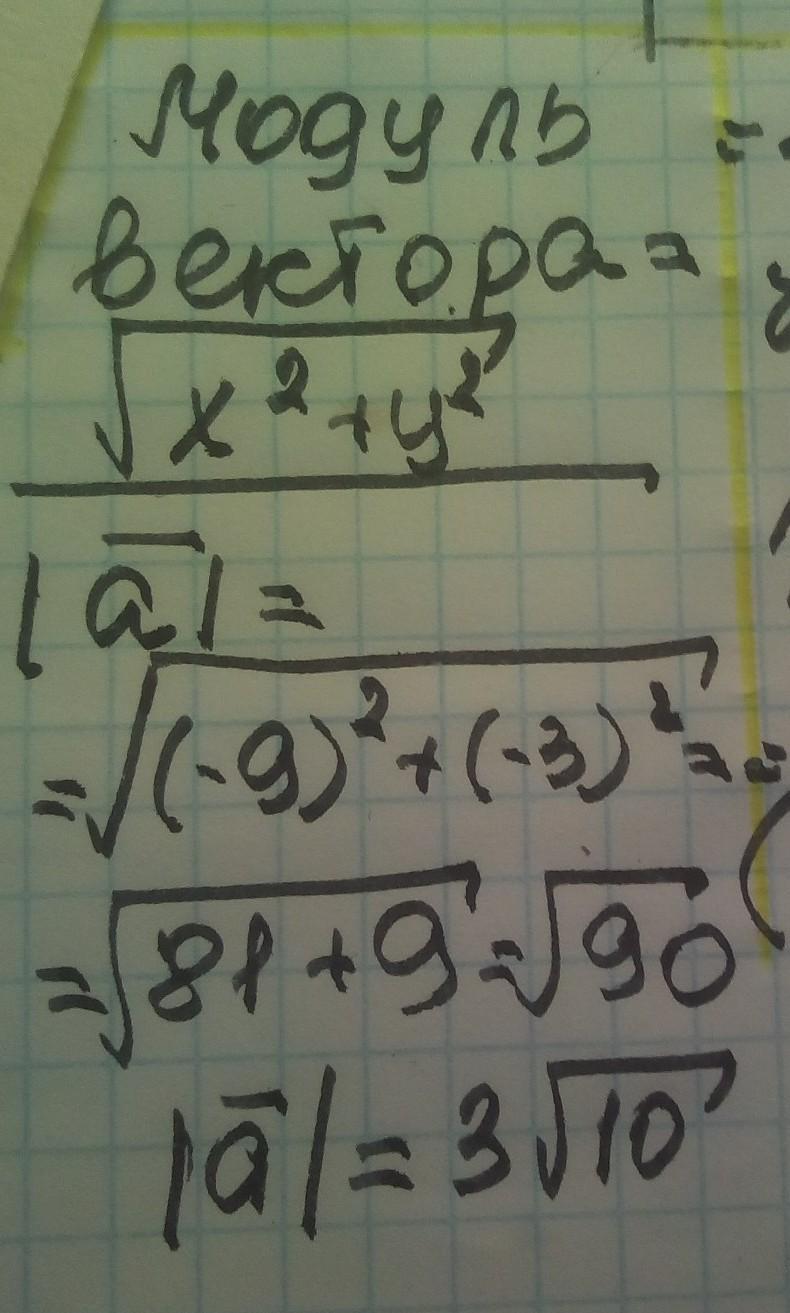 Модуль
вектора =
√x² + y²
|a̅| =
= √(-9)² + (-3)² =
= √81 + 9 = √90
|a̅| = 3√10